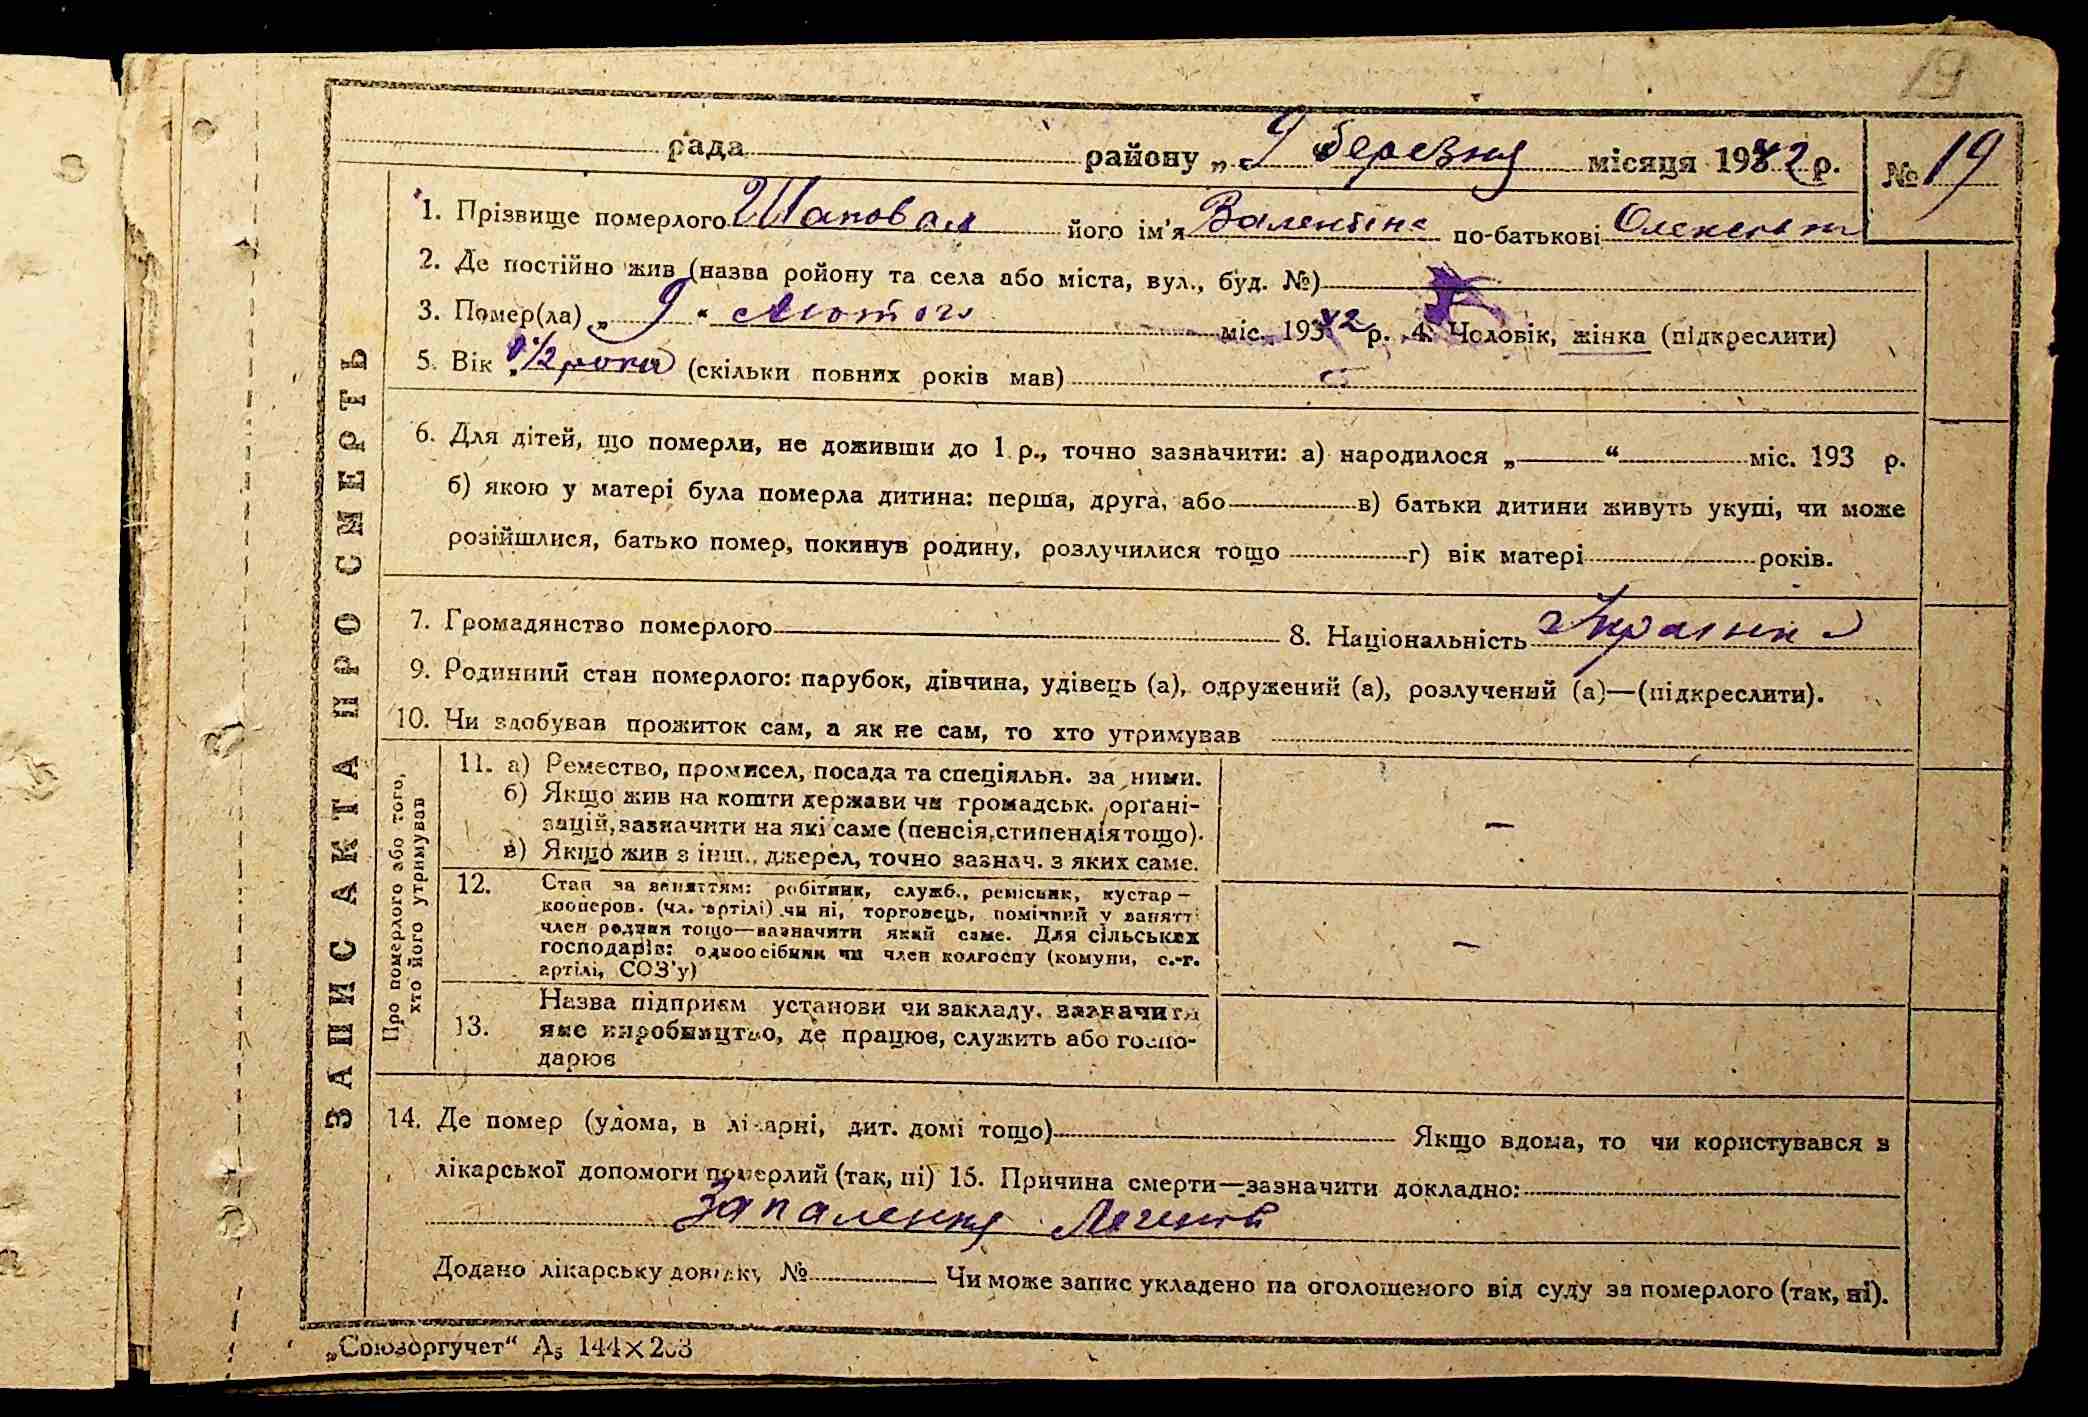 19
рада району „ 9 березня місяця 1942 р. № 19
1. Прізвище померлого Шаповал його ім'я Валентина по-батькові
2. Де постійно жив (назва ройону та села або міста, вул., буд. №)
3. Помер(ла) „ 9 “ лютого міс. 1942 р. 4. Чоловік, жінка (підкреслити)
5. Вік 1/2 рока (скільки повних років мав)
6. Для дітей, що померли, не доживши до 1 р., точно зазначити: а) народилося „ “ міс. 193 р.
б) якою у матері була померла дитина: перша, друга, або в) батьки дитини живуть укупі, чи може
розійшлися, батько помер, покинув родину, розлучилися тощо г) вік матері років.
7. Громадянство померлого 8. Національність Українка
9. Родинний стан померлого: парубок, дівчина, удівець (а), одружений (а), розлучений (а)—(підкреслити).
10. Чи здобував прожиток сам, а як не сам, то хто утримував
ЗАПИС АКТА ПРО СМЕРТЬ
Про померлого або того,
хто його утримував
11. а) Ремество, промисел, посада та спеціяльн. за ними.
б) Якщо жив на кошти держави чи громадськ. органі-
зацій, зазначити на які саме (пенсія, стипендія тощо).
в) Якщо жив з інш. джерел, точно зазнач. з яких саме.
–
12. Стан за заняттям: робітник, служб., ремісник, кустар—
кооперов. (чл. артілі) чи ні, торговець, помічний у занятт
член родини тощо—зазначити який саме. Для сільських
господарів: одноосібник чи член колгоспу (комуни, с.-г.
артілі, СОЗ'у)
–
13. Назва підприєм установи чи закладу, зазначити
яке виробництво, де працює, служить або госпо-
дарює
14. Де помер (удома, в лікарні, дит. домі тощо) Якщо вдома, то чи користувався з
лікарської допомоги померлий (так, ні) 15. Причина смерти—зазначити докладно:
Запалення Легенів
Додано лікарську довідку № Чи може запис укладено па оголошеного від суду за померлого (так, ні).
„Союзоргучет“ А5 144×203